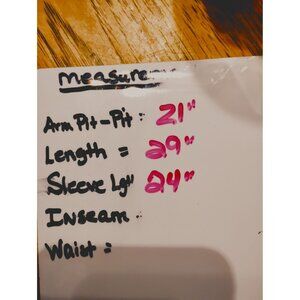 measure
Arm Pit-Pit: 21"
Length = 29"
Sleeve Lgt 24"
Inseam:
Waist =